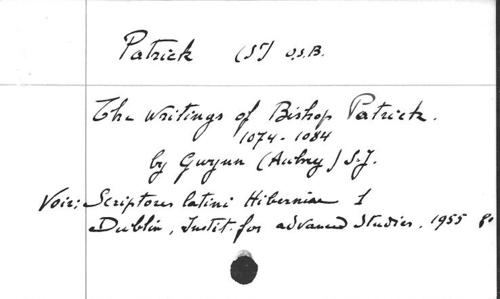 Patrick (St) O.S.B.
The Writings of Bishop Patrick.
1074-1084
by Gwynn (Aubrey) S.J.
Voir: Scriptores latini Hiberniae I
Dublin, Instit. for advanced Studies, 1955 8°